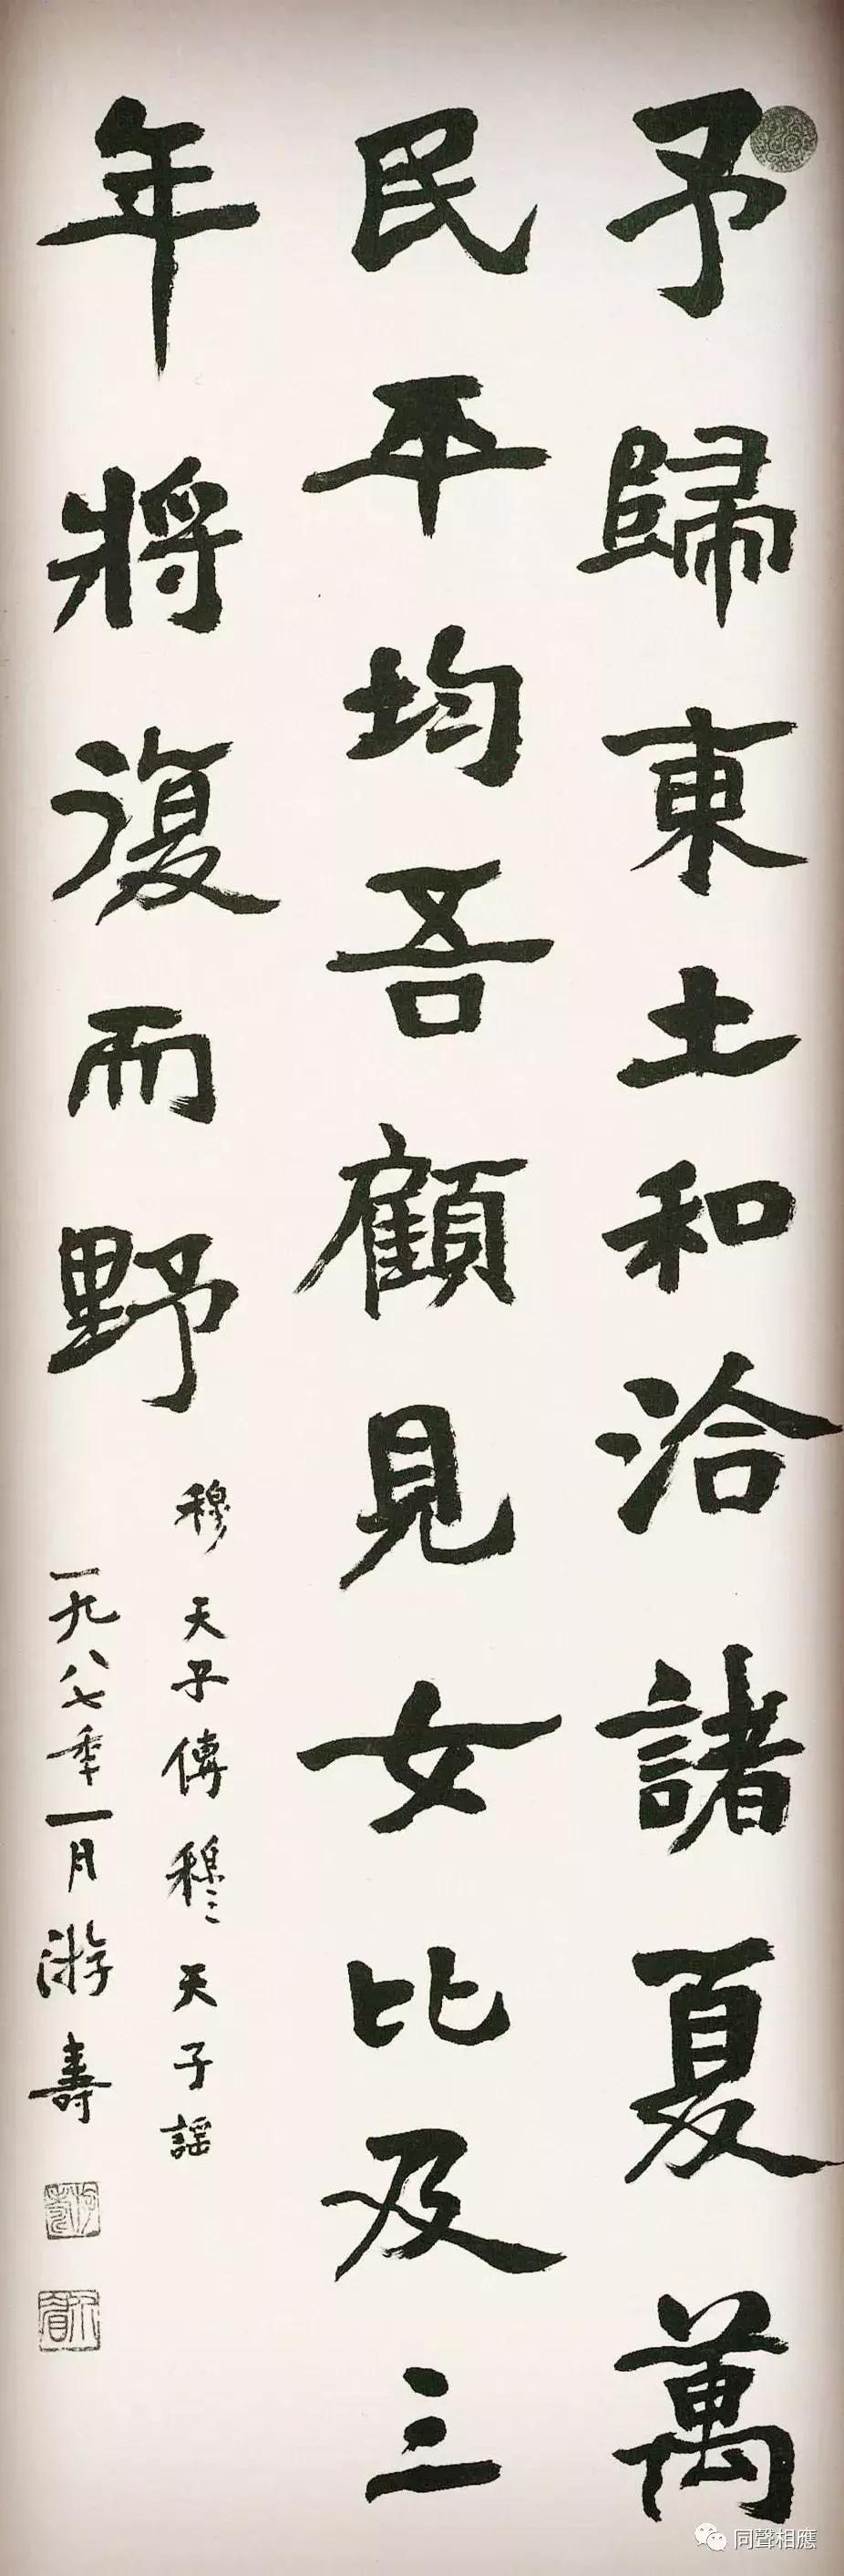 予歸東土和洽諸夏萬
民平均吾顧見女比及三
年將復而野
穆天子傳穆〻天子謠
一九八七年一月游壽
同聲相應